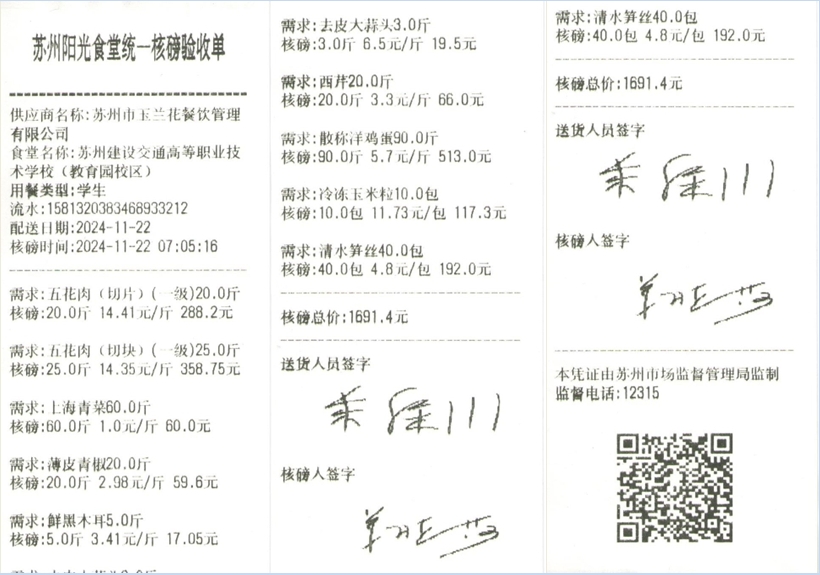 苏州阳光食堂统一核磅验收单
供应商名称:苏州市玉兰花餐饮管理
有限公司
食堂名称:苏州建设交通高等职业技
术学校（教育园校区）
用餐类型:学生
流水:1581320383468933212
配送日期:2024-11-22
核磅时间:2024-11-22 07:05:16
需求:五花肉（切片）(一级)20.0斤
核磅:20.0斤 14.41元/斤 288.2元
需求:五花肉（切块）(一级)25.0斤
核磅:25.0斤 14.35元/斤 358.75元
需求:上海青菜60.0斤
核磅:60.0斤 1.0元/斤 60.0元
需求:薄皮青椒20.0斤
核磅:20.0斤 2.98元/斤 59.6元
需求:鲜黑木耳5.0斤
核磅:5.0斤 3.41元/斤 17.05元
需求:去皮大蒜头3.0斤
核磅:3.0斤 6.5元/斤 19.5元
需求:西芹20.0斤
核磅:20.0斤 3.3元/斤 66.0元
需求:散称洋鸡蛋90.0斤
核磅:90.0斤 5.7元/斤 513.0元
需求:冷冻玉米粒10.0包
核磅:10.0包 11.73元/包 117.3元
需求:清水笋丝40.0包
核磅:40.0包 4.8元/包 192.0元
核磅总价:1691.4元
送货人员签字
核磅人签字
需求:清水笋丝40.0包
核磅:40.0包 4.8元/包 192.0元
核磅总价:1691.4元
送货人员签字
核磅人签字
本凭证由苏州市场监督管理局监制
监督电话:12315